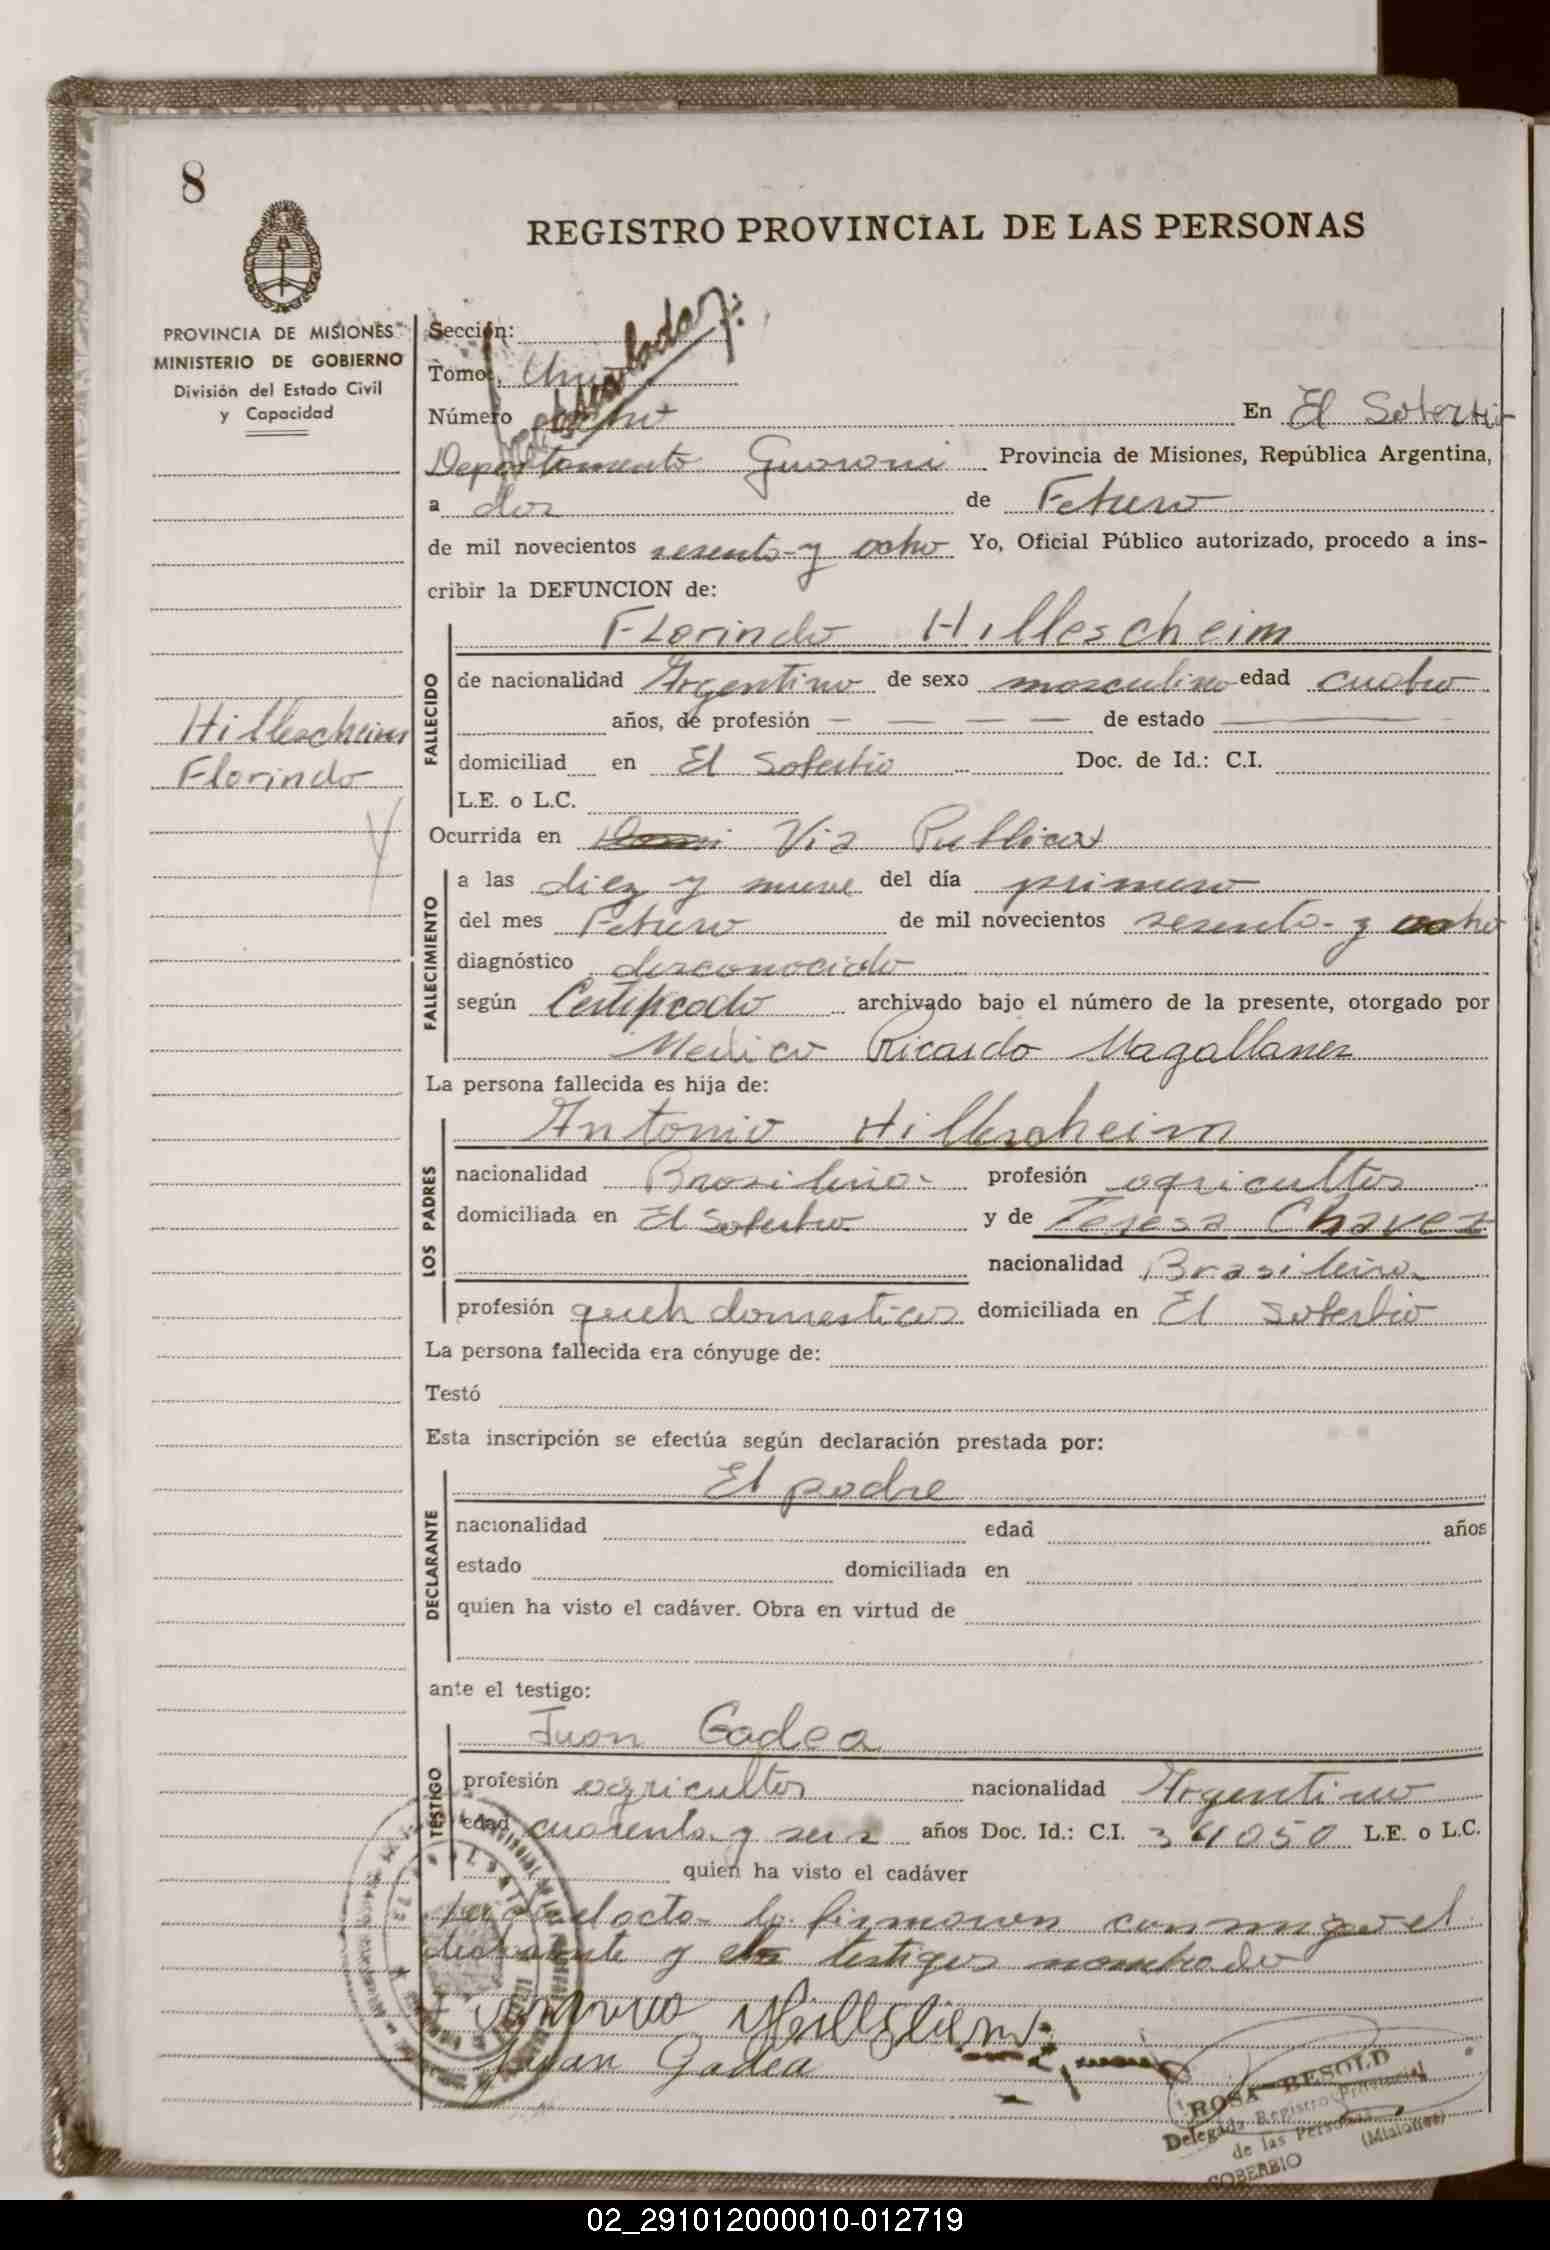 8
REGISTRO PROVINCIAL DE LAS PERSONAS
PROVINCIA DE MISIONES
MINISTERIO DE GOBIERNO
División del Estado Civil
y Capacidad
Sección:
Tomo: Uno
Número ocho En El Soberbio
Departamento Guarani Provincia de Misiones, República Argentina,
a dos de Febrero
de mil novecientos sesenta y ocho Yo, Oficial Público autorizado, procedo a ins-
cribir la DEFUNCION de:
Florindo Hillescheim
Hillescheim
Florindo
FALLECIDO
de nacionalidad Argentino de sexo masculino edad cuatro
años, de profesión — — — — de estado ———
domiciliad en El Soberbio Doc. de Id.: C.I.
L.E. o L.C.
Ocurrida en Via Publica
FALLECIMIENTO
a las diez y nueve del día primero
del mes Febrero de mil novecientos sesenta y ocho
diagnóstico desconocido
según Certificado archivado bajo el número de la presente, otorgado por
Medico Ricardo Magallanes
La persona fallecida es hija de:
LOS PADRES
Antonio Hillescheim
nacionalidad Brasilera profesión agricultor
domiciliada en El Soberbio y de Teresa Chavez
nacionalidad Brasilera
profesión queh domesticos domiciliada en El Soberbio
La persona fallecida era cónyuge de:
Testó
Esta inscripción se efectúa según declaración prestada por:
DECLARANTE
El padre
nacionalidad edad años
estado domiciliada en
quien ha visto el cadáver. Obra en virtud de
ante el testigo:
TESTIGO
Juan Gadea
profesión agricultor nacionalidad Argentino
edad cuarenta y seis años Doc. Id.: C.I. 34050 L.E. o L.C.
quien ha visto el cadáver
el acta la firmaron conmigo el
declarante y testigos nombrado
Juan Gadea
ROSA BESOLD
Delegada Registro Provincial
de las Personas
SOBERBIO (Misiones)
02_291012000010-012719